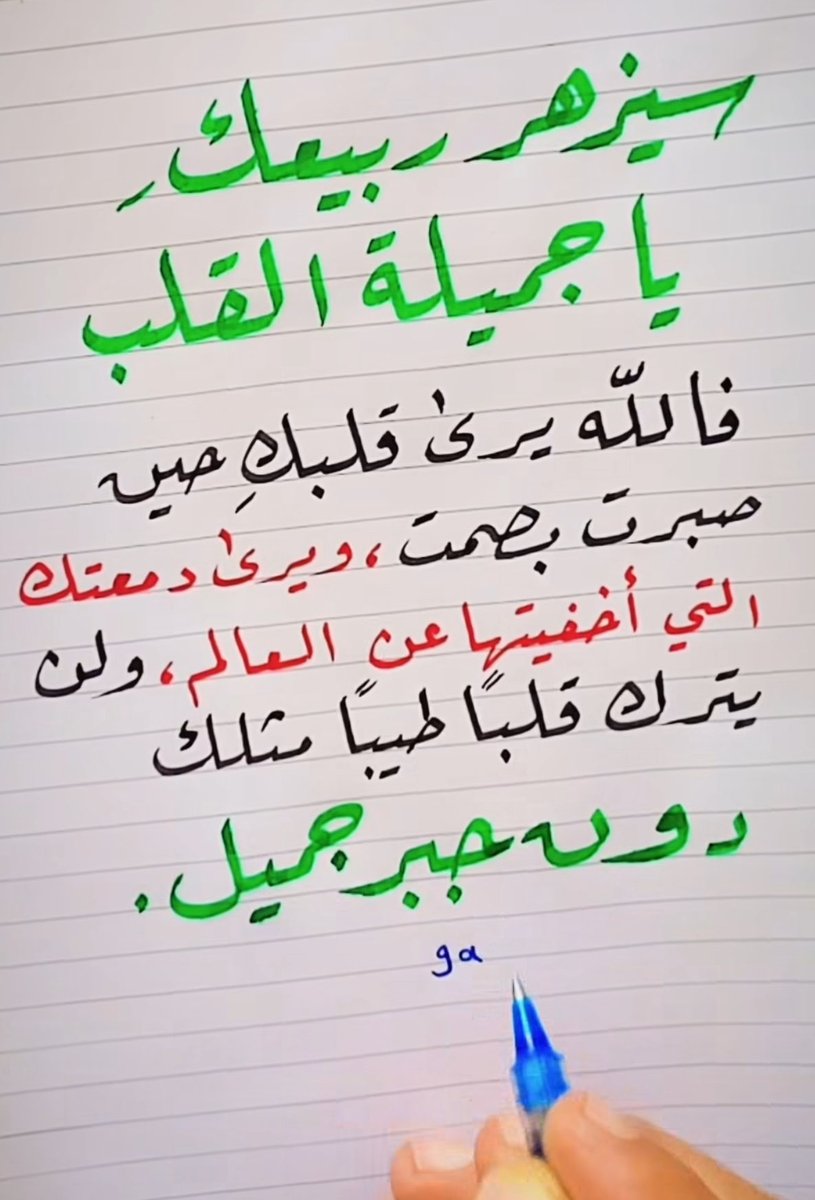 سيزهر ربيعكِ
يا جميلة القلب
فاللّه يرىٰ قلبكِ حين
صبرت بصمت، ويرىٰ دمعتك
التي أخفيتها عن العالم، ولن
يترك قلبًا طيبًا مثلك
دون جبر جميل.
ga